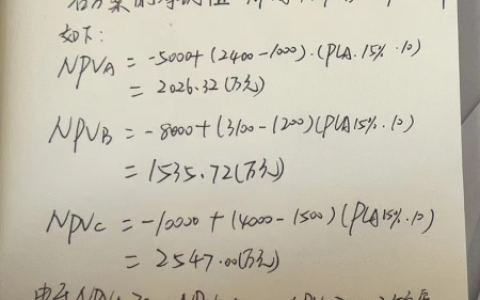 各方案的净现值
如下:
NPVA = -5000+(2400-1000)·(P/A.15%.10)
= 2026.32(万元)
NPVB = -8000+(3100-1200)(P/A15%.10)
= 1535.72(万元)
NPVC = -10000+(4000-1500)(P/A15%.10)
= 2547.00(万元)
由于NPVA